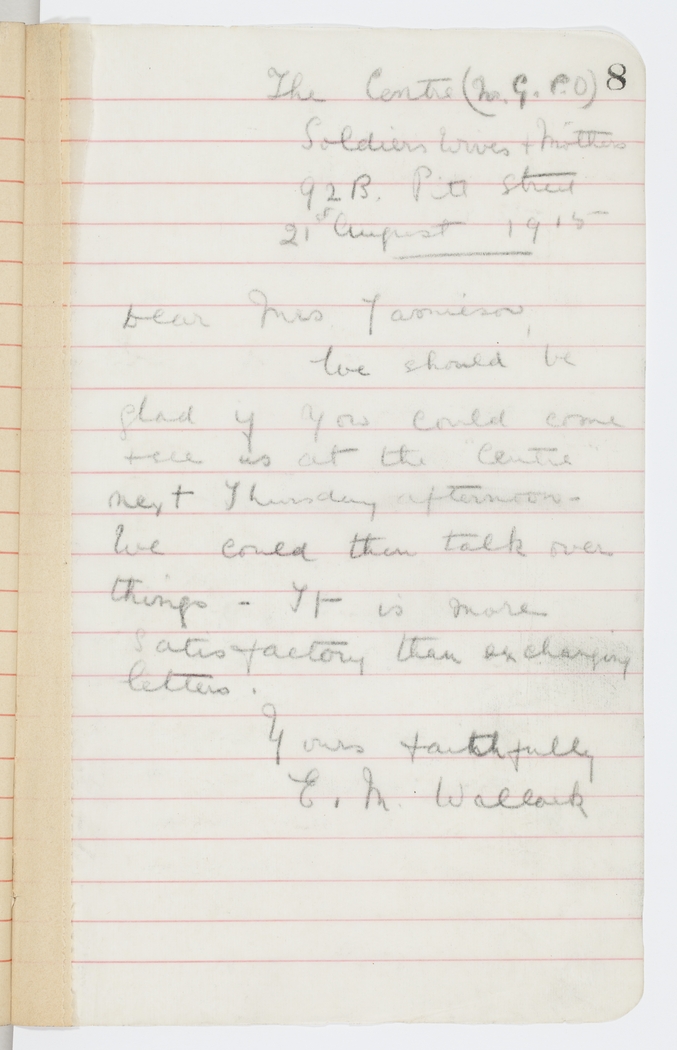 8
The Centre (nr. G.P.O)
Soldiers Wives + Mothers
92B. Pitt Street
21st August 1915
Dear Mrs Jamieson,
We should be
glad if you could come
+ see us at the "Centre"
next Thursday afternoon -
We could then talk over
things - It is more
satisfactory than exchanging
letters.
Yours faithfully
E. M. Wallack